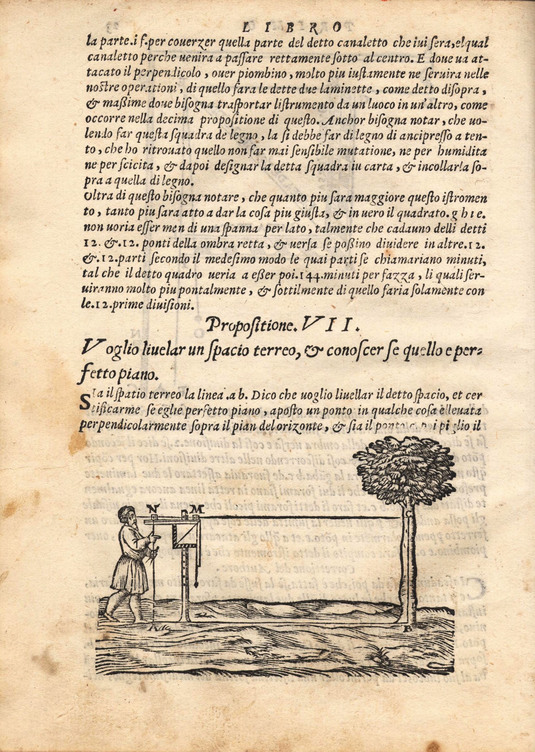 LIBRO
la parte.i f.per couerzer quella parte del detto canaletto che iui sera,el qual
canaletto perche uenira a passare rettamente sotto al centro. E doue ua at-
tacato il perpendicolo , ouer piombino, molto piu iustamente ne seruira nelle
nostre operationi, di quello fara le dette due laminette , come detto disopra,
& maßime doue bisogna trasportar listrumento da un luoco in un'altro, come
occorre nella decima propositione di questo. Anchor bisogna notar, che uo-
lendo far questa squadra de legno, la si debbe far di legno di ancipresso a ten-
to, che ho ritrouato quello non far mai sensibile mutatione, ne per humidita
ne per scicita, & dapoi designar la detta squadra iu carta , & incollarla so-
pra a quella di legno.
Oltra di questo bisogna notare, che quanto piu sara maggiore questo istromen
to , tanto piu sara atto a dar la cosa piu giusta, & in uero il quadrato. g h i e.
non uoria esser men di una spanna per lato, talmente che cadauno delli detti
12. &.12. ponti della ombra retta , & uersa se poßino diuidere in altre.12.
&.12.parti secondo il medesimo modo le quai parti se chiamariano minuti,
tal che il detto quadro ueria a eßer poi.144.minuti per fazza, li quali ser-
uiranno molto piu pontalmente, & sottilmente di quello faria solamente con
le.12.prime diuisioni.
Propositione. VII.
Voglio liuelar un spacio terreo, & conoscer se quello e per-
fetto piano.
Sia il spatio terreo la linea .a b. Dico che uoglio liuellar il detto spacio, et cer
tificarme se eglie perfetto piano , aposto un ponto in qualche cosa elleuata
perpendicolarmente sopra il pian del orizonte , & sia il ponto
N M
B